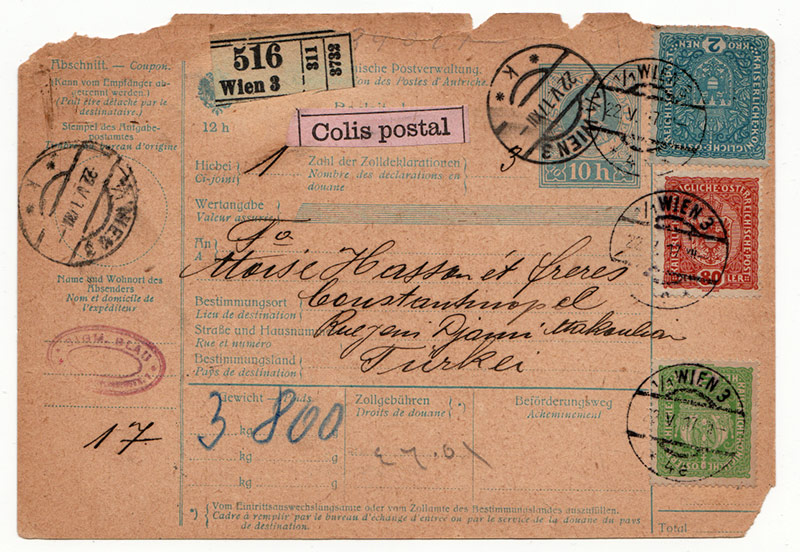 Abschnitt. — Coupon.
(Kann vom Empfänger ab-
getrennt werden.)
(Peut être détaché par le
destinataire.)
Stempel des Aufgabe-
postamtes
bureau d'origine
Name und Wohnort des
Absenders
Nom et domicile de
l'expéditeur
17.
516
Wien 3
311
3732
nische Postverwaltung.
on des Postes d'Autriche.
12 h
Colis postal
10 h
Hiebei
Ci-joint
1
Zahl der Zolldeklarationen
Nombre des déclarations en
douane
3
Wertangabe
Valeur assurée
An
A
Moïse Hasson et freres
Bestimmungsort
Lieu de destination
Constantinopel
Straße und Hausnum
Rue et numéro
Rue Jeni Djami
Bestimmungsland
Pays de destination
Türkei
Gewicht
Poids
3 800
kg
kg
kg
kg
Zollgebühren
Droits de douane
Beförderungsweg
Acheminement
*) Vom Eintrittsauswechslungsamte oder vom Zollamte des Bestimmungslandes auszufüllen.
Cadre à remplir par le bureau d'échange d'entrée ou par le service de la douane du pays
de destination.
Total
2
KRO
NEN
80
1/1 WIEN 3
22.V.17
1/1 WIEN 3
1/1 WIEN 3
1/1 WIEN 3
22.V.17
WIEN 3
22.V.17